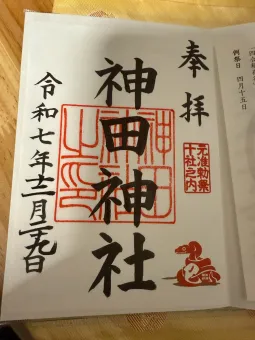 奉拝
元准勅祭
十社之内
神田神社
神田
神社
之印
令和七年十二月二九日
例祭日 四月十五日